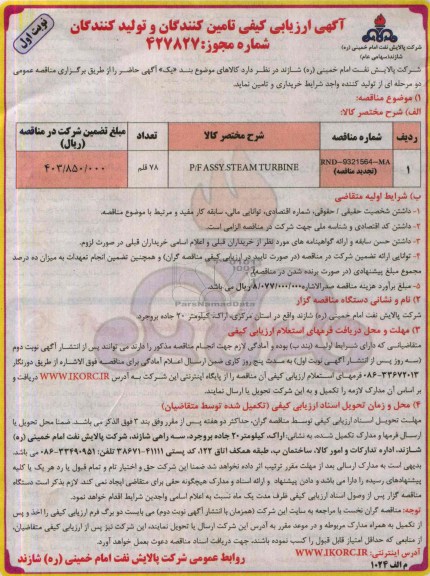 نوبت اول
آگهی ارزیابی کیفی تامین کنندگان و تولید کنندگان
شماره مجوز: ۴۲۷۸۲۷
شرکت پالایش نفت امام خمینی (ره)
شازند(سهامی عام)
شرکت پالایش نفت امام خمینی (ره) شازند در نظر دارد کالاهای موضوع بند «یک» آگهی حاضر را از طریق برگزاری مناقصه عمومی
دو مرحله ای از تولید کننده واجد شرایط خریداری و تامین نماید.
۱) موضوع مناقصه:
الف) شرح مختصر کالا:
ردیف شماره مناقصه شرح مختصر کالا تعداد مبلغ تضمین شرکت در مناقصه (ریال)
۱ RND-9321564-MA (تجدید مناقصه) P/F ASSY.STEAM TURBINE ۷۸ قلم ۴۰۳/۸۵۰/۰۰۰
ب) شرایط اولیه متقاضی
۱- داشتن شخصیت حقیقی / حقوقی، شماره اقتصادی، توانایی مالی، سابقه کار مفید و مرتبط با موضوع مناقصه.
۲- داشتن کد اقتصادی و شناسه ملی جهت شرکت در مناقصه الزامی است.
۳- داشتن حسن سابقه و ارائه گواهینامه های مورد نظر از خریداران قبلی و اعلام اسامی خریداران قبلی در صورت لزوم.
۴- توانایی ارائه تضمین شرکت در مناقصه (در صورت تایید در ارزیابی کیفی مناقصه گران) و همچنین تضمین انجام تعهدات به میزان ده درصد
مجموع مبلغ پیشنهادی (در صورت برنده شدن در مناقصه).
۵- مبلغ برآورد هزینه مناقصه صدرالاشاره ۸/۰۷۷/۰۰۰/۰۰۰ ریال می باشد.
ParsNamadData
۲) نام و نشانی دستگاه مناقصه گزار
شرکت پالایش نفت امام خمینی (ره) شازند واقع در استان مرکزی، اراک، کیلومتر ۲۰ جاده بروجرد.
۳) مهلت و محل دریافت فرمهای استعلام ارزیابی کیفی
متقاضیانی که دارای شرایط اولیه( بند ب) بوده و آمادگی لازم جهت انجام مناقصه مذکور را دارند می توانند پس از انتشار آگهی نوبت دوم
(سه روز پس از انتشار آگهی نوبت اول) به مدت پنج روز کاری ضمن ارسال اعلام آمادگی برای مناقصه فوق الاشاره از طریق دورنگار
۰۸۶-۳۳۶۷۲۰۱۳ فرمهای استعلام ارزیابی کیفی آن مناقصه را از پایگاه اینترنتی این شرکت به آدرس WWW.IKORC.IR دریافت و
بر اساس آن مدارک لازمه را تکمیل و به این شرکت تحویل یا ارسال نمایند.
۴) محل و زمان تحویل اسناد ارزیابی کیفی (تکمیل شده توسط متقاضیان)
مهلت تحویل اسناد ارزیابی کیفی توسط مناقصه گران، حداکثر دو هفته پس از مقرر وفق بند ۳ فوق الذکر می باشد. ضمنا محل تحویل یا
ارسال فرمها و مدارک تکمیل شده، به نشانی: اراک، کیلومتر ۲۰ جاده بروجرد، سه راهی شازند، شرکت پالایش نفت امام خمینی (ره)
شازند، اداره تدارکات و امور کالا، ساختمان پ، طبقه همکف اتاق ۱۲۲، کد پستی ۴۱۱۱۱-۳۸۶۷۱ تلفن: ۳۳۴۹۰۹۵۱-۰۸۶ می باشد.
بدیهی است به مدارک ارسالی بعد از مهلت مقرر ترتیب اثر داده نخواهد شد ضمنا این شرکت حق و اختیار تام و تمام قبول یا رد هر یک یا کلیه
پیشنهادهای رسیده را دارا می باشد و دادن پیشنهاد و ارائه اسناد و مدارک هیچگونه حقی برای متقاضی ایجاد نمی کند. لازم بذکر است دستگاه
مناقصه گزار پس از وصول اسناد ارزیابی کیفی ظرف مدت یک ماه نسبت به اعلام اسامی واجدین شرایط اقدام خواهد نمود.
توجه: مناقصه گران نخست با مراجعه به سایت این شرکت (همزمان با انتشار آگهی نوبت دوم) می بایست دو برگ فرم ارزیابی کیفی را اخذ و پس
از تکمیل به همراه مدارک مربوطه و در موعد مقرر به آدرس این شرکت ارسال یا تحویل نمایند، این شرکت نیز پس از ارزیابی کیفی متقاضیان،
از منابعی که حداقل امتیاز قابل قبول را کسب نموده باشند، جهت دریافت اسناد مناقصه دعوت بعمل خواهد آورد.
آدرس اینترنتی: WWW.IKORC.IR
م الف ۱۰۲۴
روابط عمومی شرکت پالایش نفت امام خمینی (ره) شازند